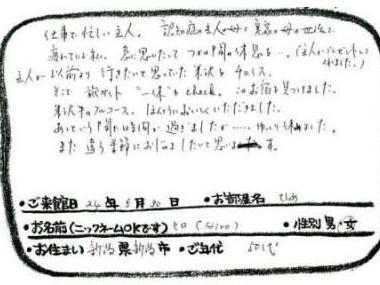 仕事で忙しい主人。認知症の主人の母と実家の母の世話で
疲れている私。急に思いたって つかの間の休息を…。(主人がプレゼントして
くれました。)
主人が以前より 行きたいと思っていた 米沢を チョイス。
そこで 旅サイト "一休" を check。このお宿を見つけました。
米沢牛のフルコース。ほんとうにおいしくいただきました。
あっという間に時間が過ぎましたが……ゆっくり休めました。
また 違う季節におじゃましたいと思います。
・ご来館日 24年 5月 30日 ・お部屋名
・お名前(ニックネームOKです) ヒロ (Hiro) ・性別 男・女
・お住まい 新潟県新潟市 ・ご年代 50代